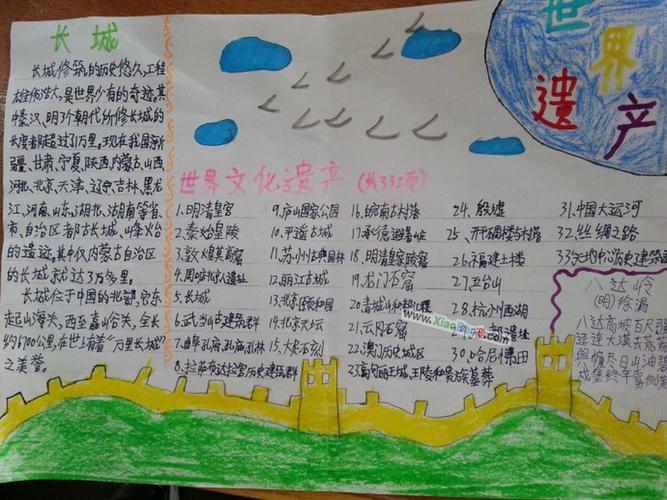 长城
长城修筑的历史悠久,工程
雄伟浩大,是世界少有的奇迹,其
中秦汉、明3个朝代所修长城的
长度都超过了1万里。现在我国新
疆、甘肃、宁夏、陕西、内蒙古、山西
河北、北京、天津、辽宁、吉林、黑龙
江、河南、山东、湖北、湖南等省
市、自治区都有古长城、烽火台
的遗迹,其中仅内蒙古自治区
的长城就达3万多里。
长城位于中国的北部,它东
起山海关,西至嘉峪关,全长
约6700公里,在世上有着“万里长城”
之美誉。
世界遗产
世界文化遗产(共33项)
1.明清皇宫
2.秦始皇陵
3.敦煌莫高窟
4.周口北京人遗址
5.长城
6.武当山古建筑群
7.曲阜孔府,孔庙,孔林
8.拉萨布达拉宫历史建筑群
9.庐山国家公园
10.平遥古城
11.苏州古典园林
12.丽江古城
13.北京颐和园
14.北京天坛
15.大足石刻
16.皖南古村落
17.承德避暑山庄
18.明清皇家陵寝
19.龙门石窟
20.青城山和都江堰
21.云冈石窟
22.澳门历史城区
23.高句丽王城、王陵和贵族墓葬
24.殷墟
25、开平碉楼与村落
26.福建土楼
27.五台山
28.杭州西湖
遗址
30.哈尼梯田
31.中国大运河
32.丝绸之路
www.Xiaobao8.com
八达岭
(明)徐渭
八达高坡百尺强
迳连大漠去荒荒